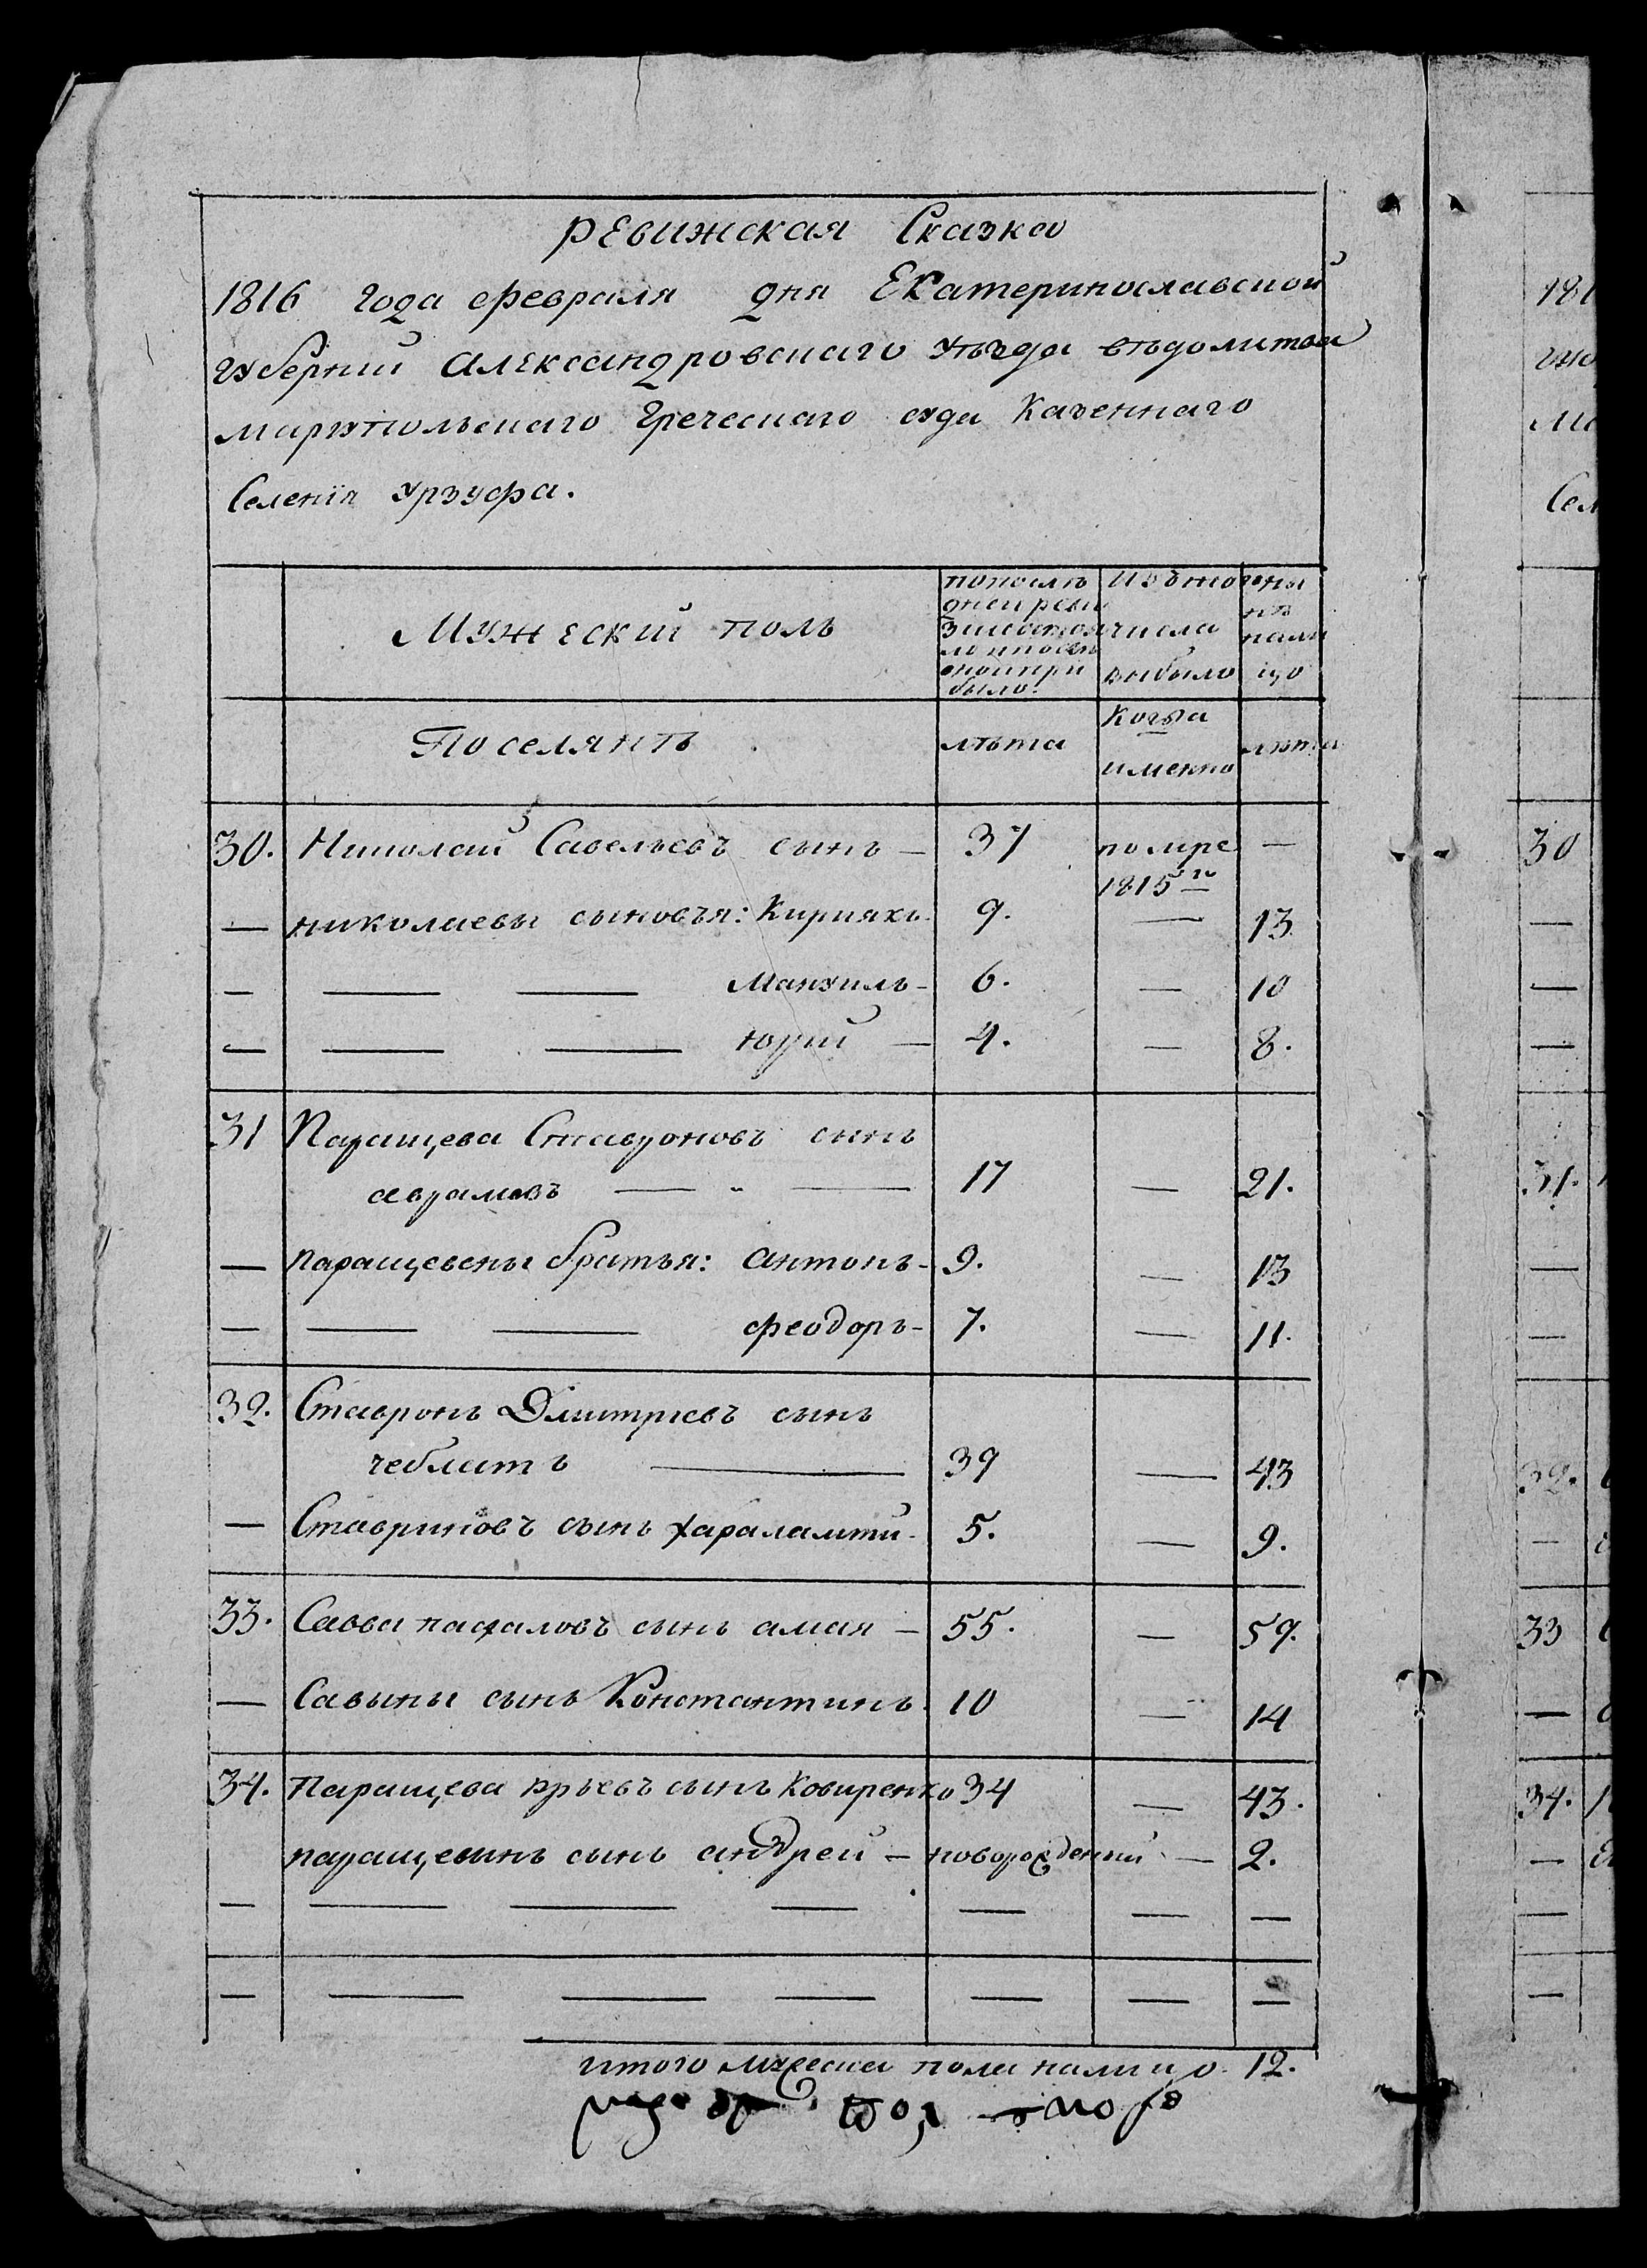 РЕвижская Сказка
1816 года февраля дня ЕКатеринославской
губернии Александровскаго уѣзда вѣдомства
мариупольскаго Греческаго суда Казеннаго
Селенія Урзуфа.
Мужеский полъ
по после
дней реви
былo.
Изъ того
числа
выбыло
ны
нѣ
нали
цо
Поселянъ
лѣта
Когда
именно
лѣта
30. Николай Савельевъ сынъ — 37 помре —
1815го
— николаевы сыновья: Кириякъ 9. — 13
— — — Мануилъ — 6. — 10
— — — Юрий — 4. — 8.
31 Паращева Ставроновъ сынъ
аврамовъ — — 17 — 21.
— паращевены братья: антонъ — 9. — 13
— — — феодоръ — 7. — 11.
32. Ставронъ Дмитриевъ сынъ
чебл<br>
— 39 — 43
— Ставриновъ сынъ харалампий 5. — 9.
33. Савва пасхаловъ сынъ амая — 55. — 59.
— Савыны сынъ Константинъ 10 — 14
34. Паращева юрьевъ сынъ 34 — 43.
паращевынъ сынъ андрей — новорожденый — 2.
— — — — — — —
— — — — — — —
итого мужеска пола налицо 12.
181
Сел
30
—
—
—
31.
—
—
32.
—
33
—
34.
—
—
—